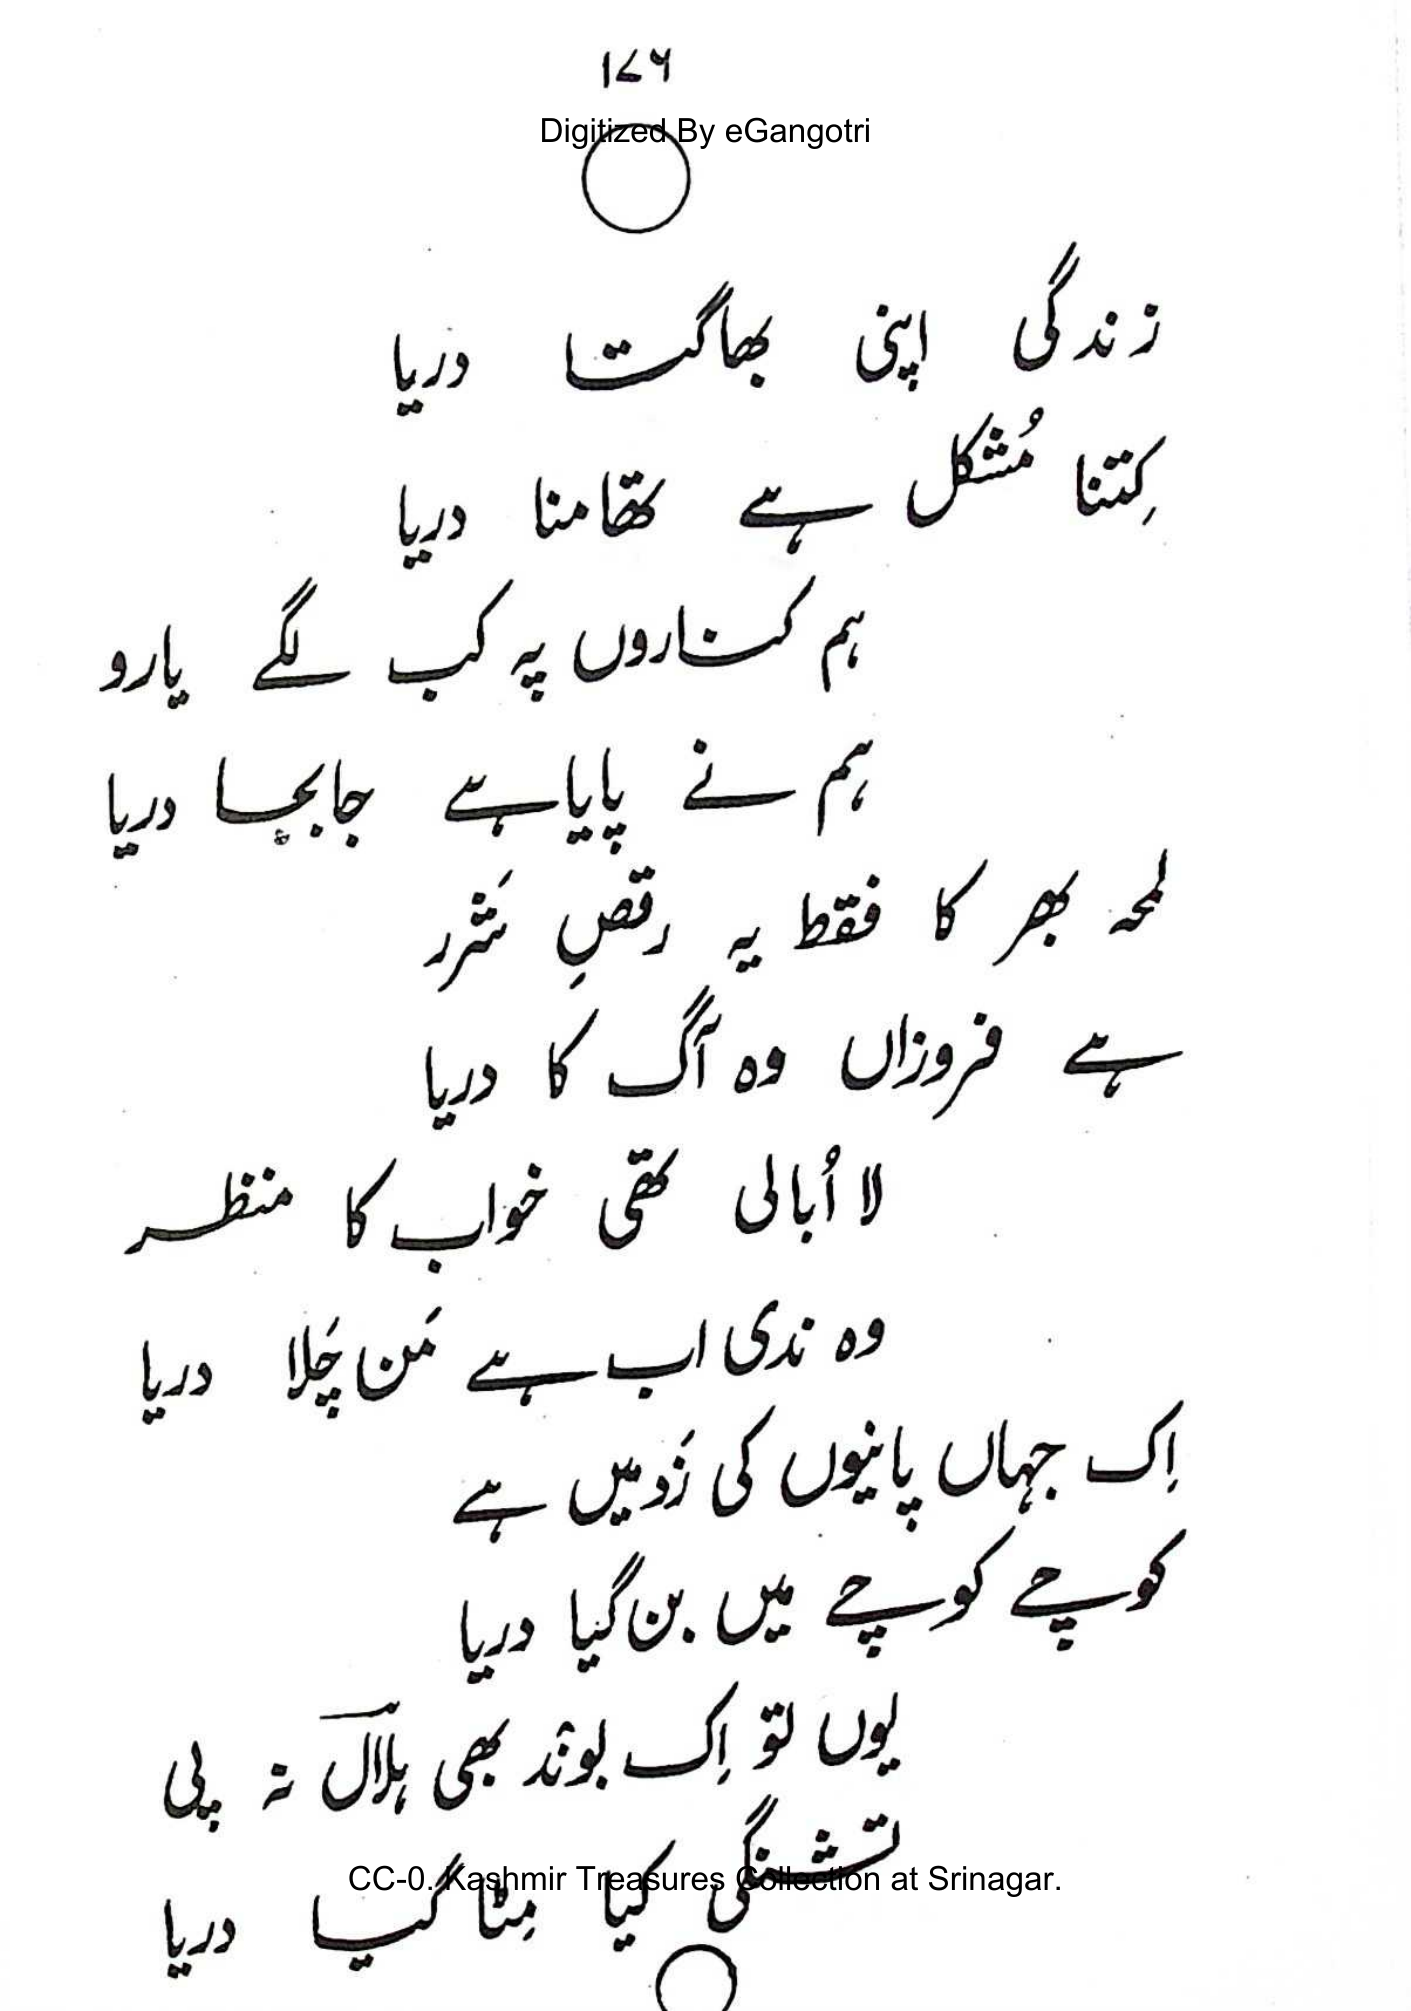 ۱۷۶
Digitized By eGangotri
زندگی اپنی بھاگتا دریا
کِتنا مُشکل ہے تھامنا دریا
ہم کناروں پہ کب لگے یارو
ہم نے پایا ہے جابجا دریا
لمحہ بھر کا فقط یہ رقصِ شَرر
ہے فروزاں وہ آگ کا دریا
لا اُبالی تھی خواب کا منظر
وہ ندی اب ہے مَن چَلا دریا
اِک جہاں پانیوں کی زَد میں ہے
کوچے کوچے میں بن گیا دریا
یوں تو اِک بوند بھی ہلالؔ نہ پی
تشنگی کیا مِٹا گیا دریا
CC-0. Kashmir Treasures Collection at Srinagar.